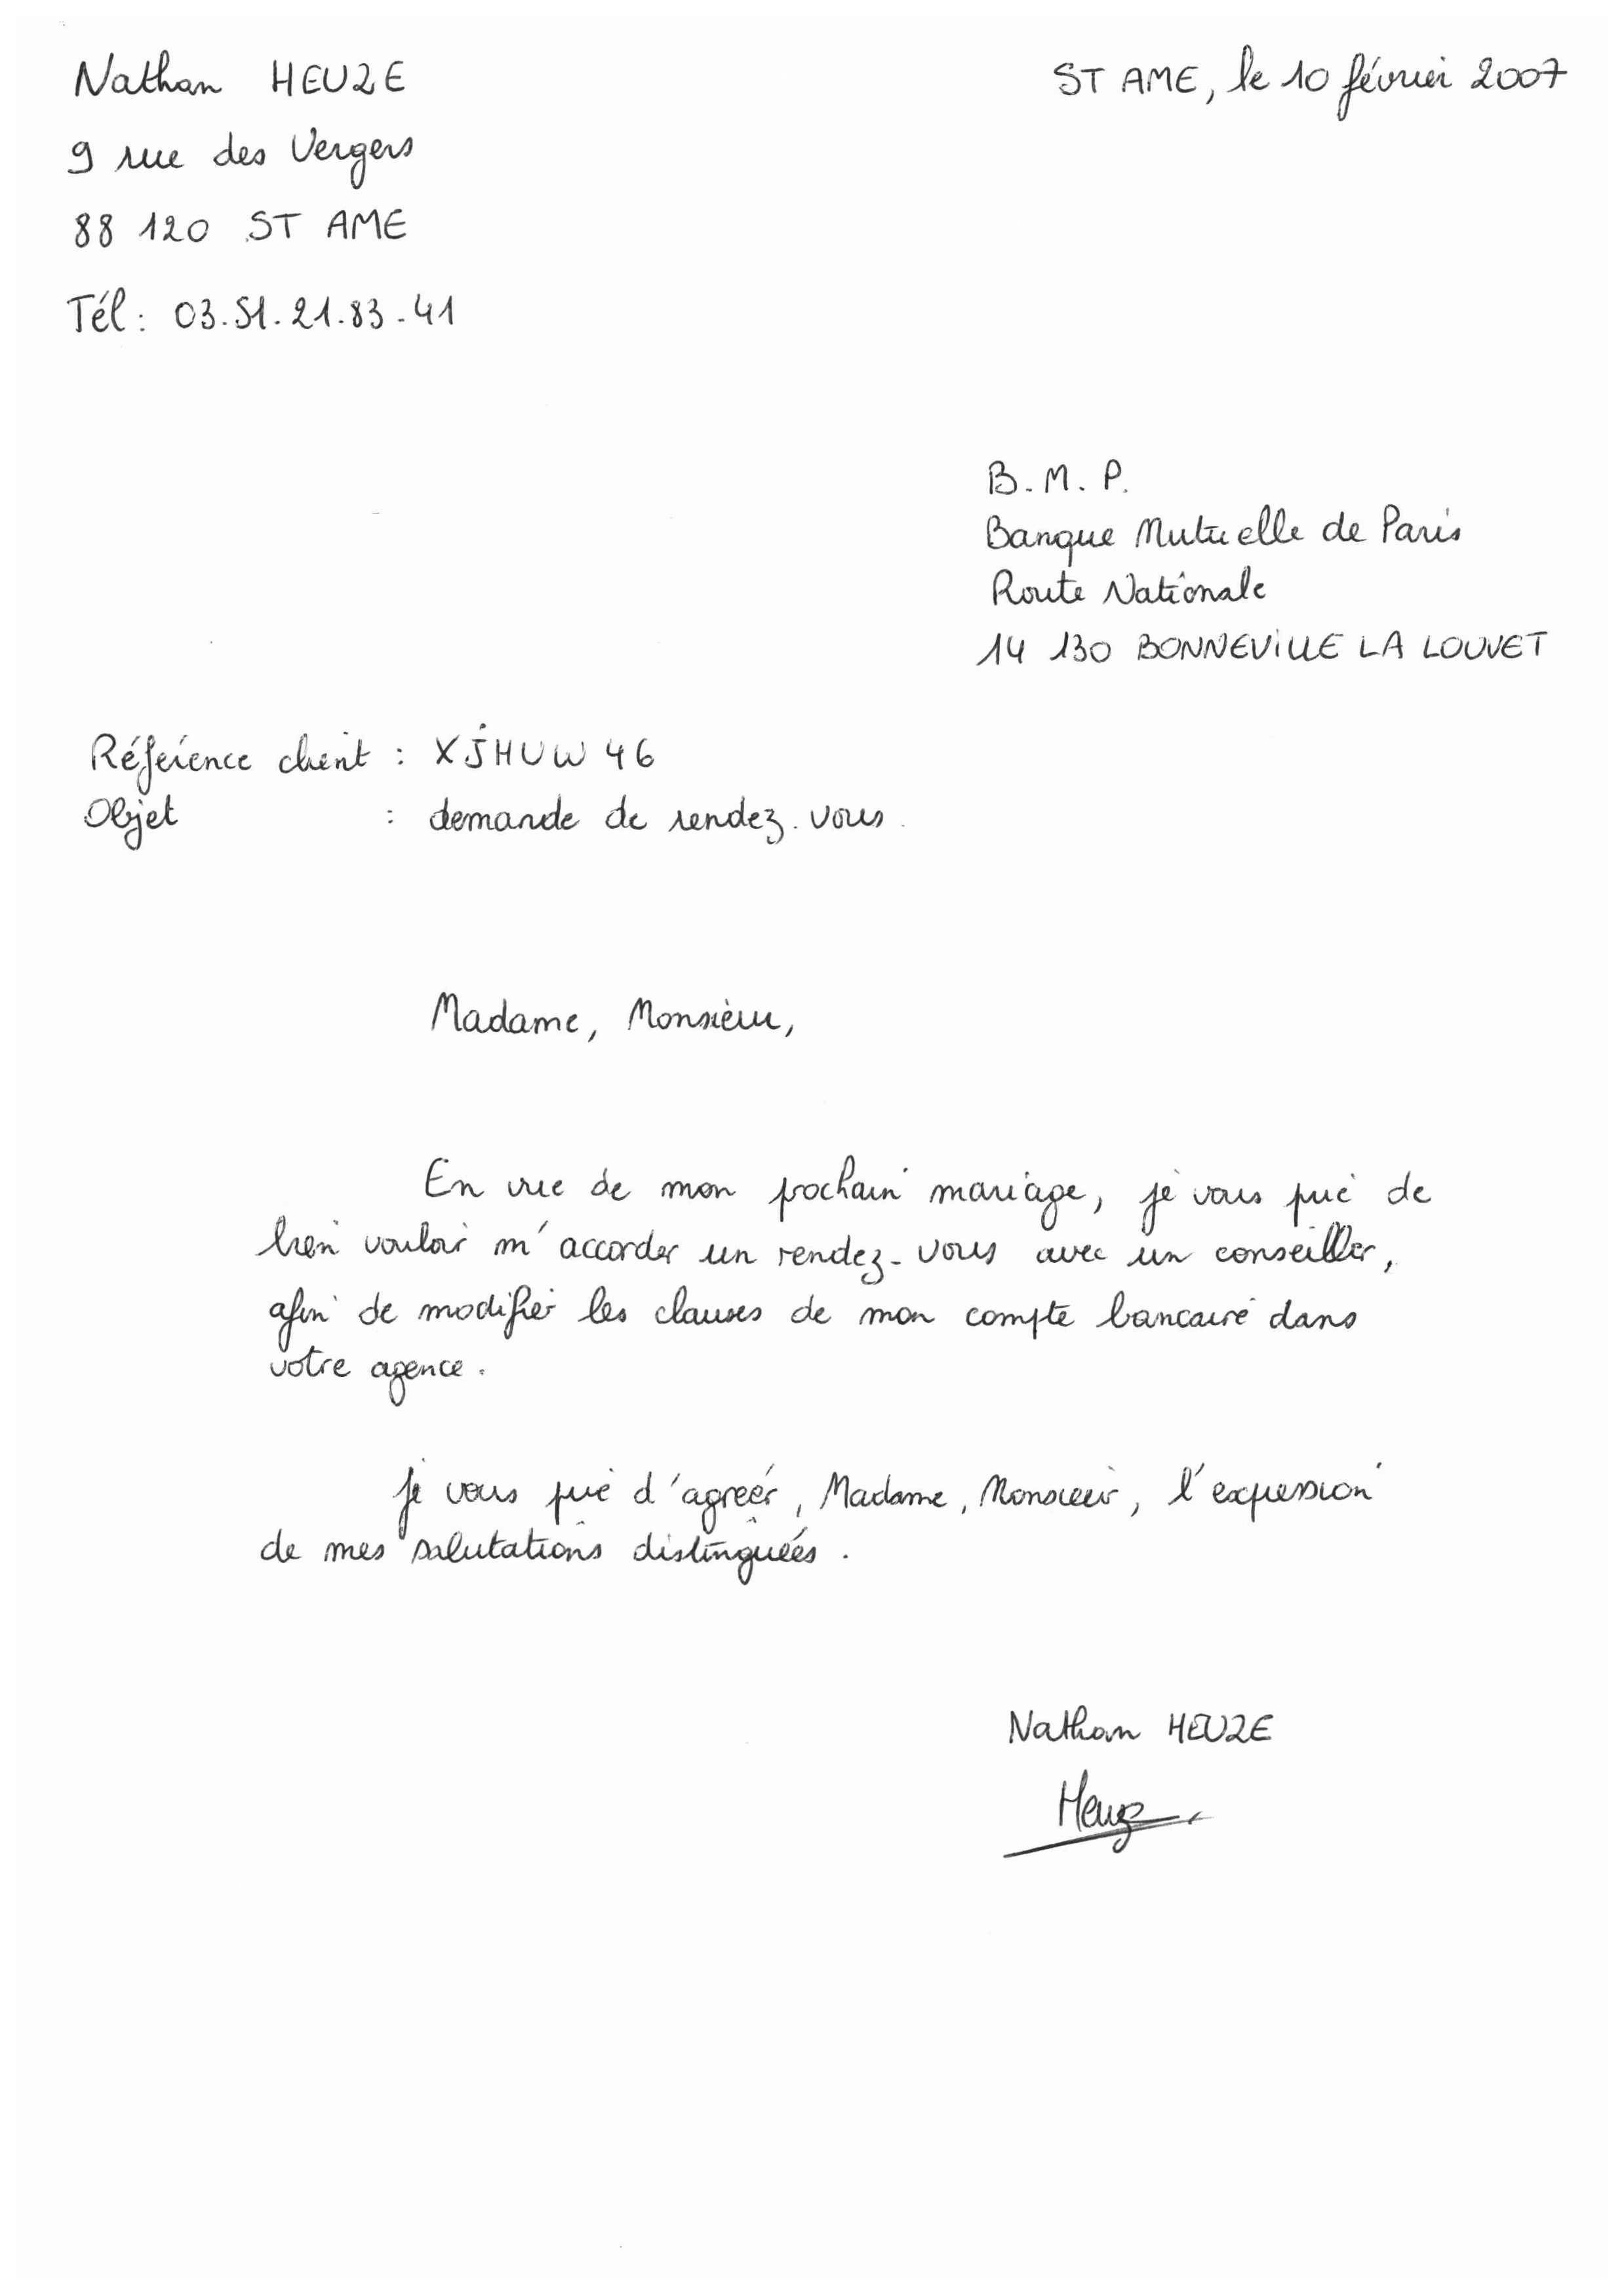 Nathan HEUZE
ST AME, le 10 février 2007
9 rue des Vergers
88 120 ST AME
Tél : 03.51.21.83.41
B.M.P.
Banque Mutuelle de Paris
Route Nationale
14 130 BONNEVILLE LA LOUVET
Référence client : XJHUW46
Objet : demande de rendez-vous.
Madame, Monsieur,
En vue de mon prochain mariage, je vous prie de
bien vouloir m'accorder un rendez-vous avec un conseiller,
afin de modifier les clauses de mon compte bancaire dans
votre agence.
Je vous prie d'agréer, Madame, Monsieur, l'expression
de mes salutations distinguées.
Nathan HEUZE
Heuz